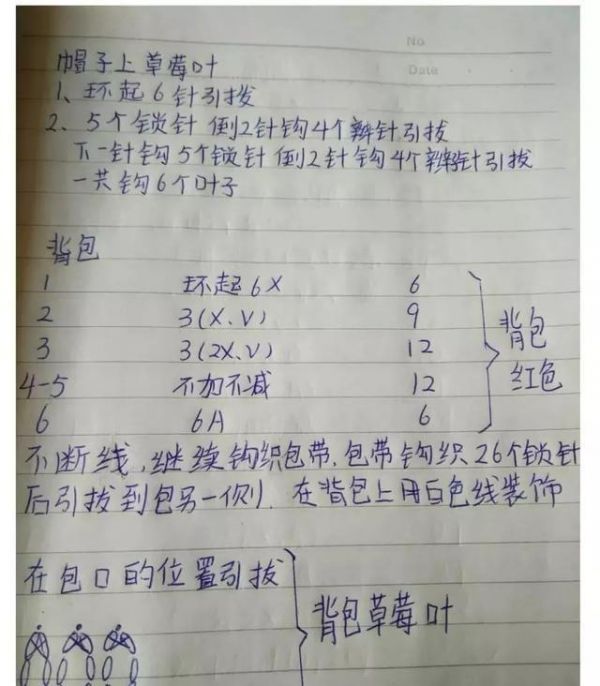 No
Date
帽子上草莓叶
1、环起6针引拔
2、5个锁针 倒2针钩4个辫针引拔
下一针钩5个锁针 倒2针钩4个辫针引拔
一共钩6个叶子
背包
1 环起6X 6
2 3(X.V) 9
3 3(2X.V) 12
4-5 不加不减 12
6 6A 6
背包
红色
不断线,继续钩织包带,包带钩织26个锁针
后引拔到包另一侧.在背包上用白色线装饰
在包口的位置引拔
背包草莓叶